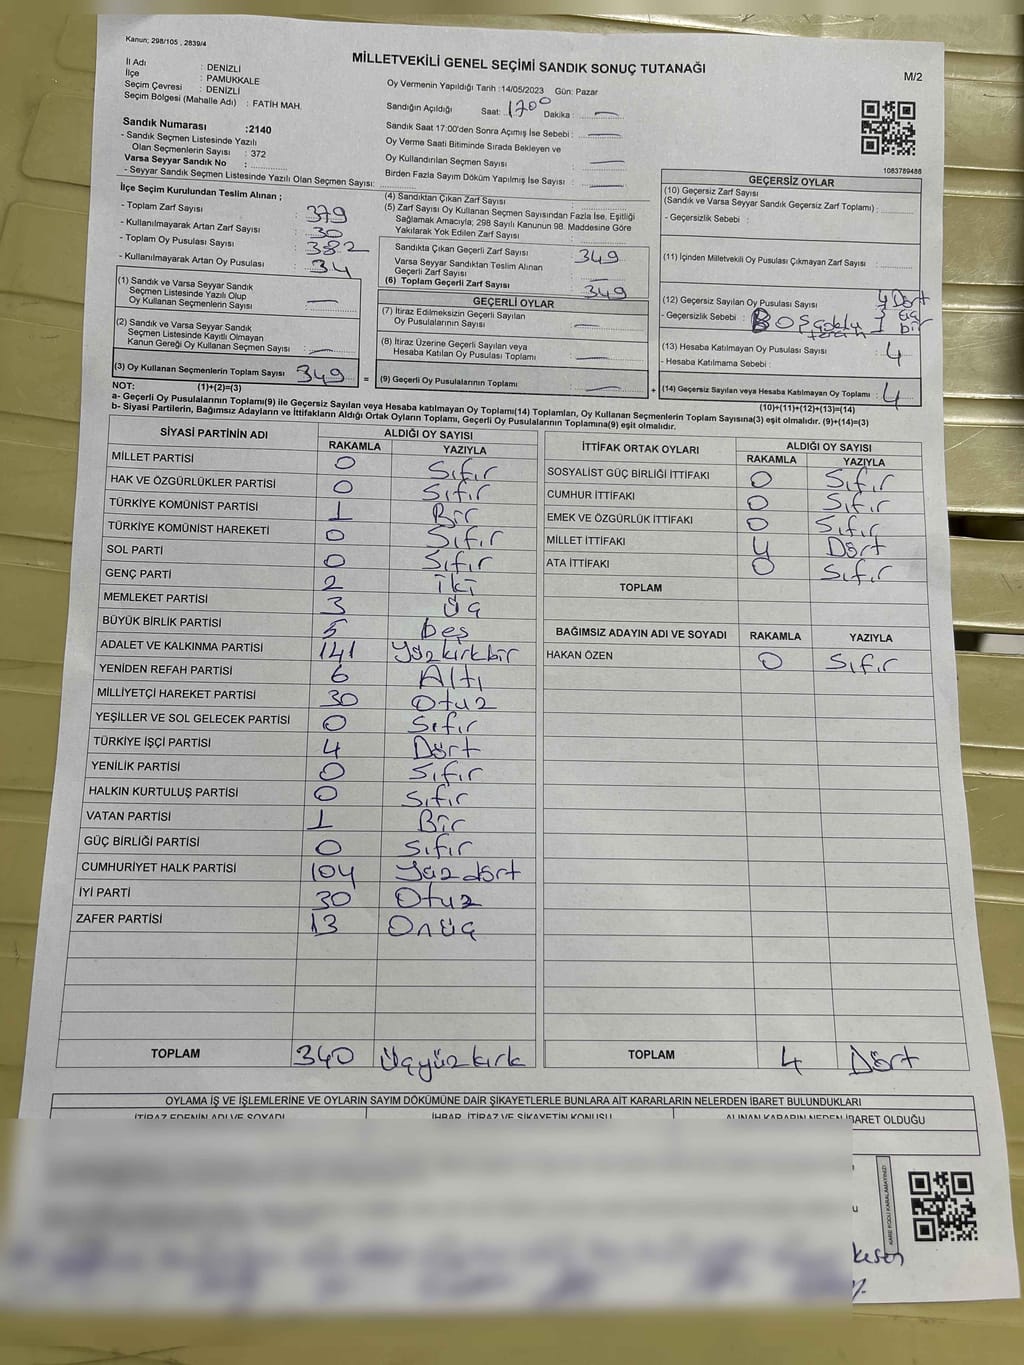 Kanun; 298/105 , 2839/4
MİLLETVEKİLİ GENEL SEÇİMİ SANDIK SONUÇ TUTANAĞI
M/2
İl Adı : DENİZLİ
İlçe : PAMUKKALE
Seçim Çevresi : DENİZLİ
Seçim Bölgesi (Mahalle Adı) : FATİH MAH.
Sandık Numarası :2140
- Sandık Seçmen Listesinde Yazılı
Olan Seçmenlerin Sayısı : 372
Varsa Seyyar Sandık No :
- Seyyar Sandık Seçmen Listesinde Yazılı Olan Seçmen Sayısı:
Oy Vermenin Yapıldığı Tarih :14/05/2023 Gün: Pazar
Sandığın Açıldığı Saat: 1700 Dakika : —
Sandık Saat 17:00'den Sonra Açımış İse Sebebi : —
Oy Verme Saati Bitiminde Sırada Bekleyen ve
Oy Kullandırılan Seçmen Sayısı —
Birden Fazla Sayım Döküm Yapılmış İse Sayısı : —
1083789486
İlçe Seçim Kurulundan Teslim Alınan ;
- Toplam Zarf Sayısı : 379
- Kullanılmayarak Artan Zarf Sayısı : 30
- Toplam Oy Pusulası Sayısı : 382
- Kullanılmayarak Artan Oy Pusulası : 34
(1) Sandık ve Varsa Seyyar Sandık
Seçmen Listesinde Yazılı Olup
Oy Kullanan Seçmenlerin Sayısı : —
(2) Sandık ve Varsa Seyyar Sandık
Seçmen Listesinde Kayıtlı Olmayan
Kanun Gereği Oy Kullanan Seçmen Sayısı : —
(3) Oy Kullanan Seçmenlerin Toplam Sayısı : 349 =
(4) Sandıktan Çıkan Zarf Sayısı :
(5) Zarf Sayısı Oy Kullanan Seçmen Sayısından Fazla İse, Eşitliği
Sağlamak Amacıyla; 298 Sayılı Kanunun 98. Maddesine Göre
Yakılarak Yok Edilen Zarf Sayısı :
Sandıkta Çıkan Geçerli Zarf Sayısı : 349
Varsa Seyyar Sandıktan Teslim Alınan
Geçerli Zarf Sayısı : —
(6) Toplam Geçerli Zarf Sayısı : 349
GEÇERLİ OYLAR
(7) İtiraz Edilmeksizin Geçerli Sayılan
Oy Pusulalarının Sayısı : —
(8) İtiraz Üzerine Geçerli Sayılan veya
Hesaba Katılan Oy Pusulası Toplamı : —
(9) Geçerli Oy Pusulalarının Toplamı : — +
GEÇERSİZ OYLAR
(10) Geçersiz Zarf Sayısı
(Sandık ve Varsa Seyyar Sandık Geçersiz Zarf Toplamı) :
- Geçersizlik Sebebi :
(11) İçinden Milletvekili Oy Pusulası Çıkmayan Zarf Sayısı :
(12) Geçersiz Sayılan Oy Pusulası Sayısı : 4 Dört
- Geçersizlik Sebebi : BOŞ
(13) Hesaba Katılmayan Oy Pusulası Sayısı : 4
- Hesaba Katılmama Sebebi :
(14) Geçersiz Sayılan veya Hesaba Katılmayan Oy Toplamı : 4
NOT: (1)+(2)=(3)
(10)+(11)+(12)+(13)=(14)
a- Geçerli Oy Pusulalarının Toplamı(9) ile Geçersiz Sayılan veya Hesaba katılmayan Oy Toplamı(14) Toplamları, Oy Kullanan Seçmenlerin Toplam Sayısına(3) eşit olmalıdır. (9)+(14)=(3)
b- Siyasi Partilerin, Bağımsız Adayların ve İttifakların Aldığı Ortak Oyların Toplamı, Geçerli Oy Pusulalarının Toplamına(9) eşit olmalıdır.
SİYASİ PARTİNİN ADI ALDIĞI OY SAYISI
RAKAMLA YAZIYLA
MİLLET PARTİSİ 0 Sıfır
HAK VE ÖZGÜRLÜKLER PARTİSİ 0 Sıfır
TÜRKİYE KOMÜNİST PARTİSİ 1 Bir
TÜRKİYE KOMÜNİST HAREKETİ 0 Sıfır
SOL PARTİ 0 Sıfır
GENÇ PARTİ 2 iki
MEMLEKET PARTİSİ 3 Üç
BÜYÜK BİRLİK PARTİSİ 5 beş
ADALET VE KALKINMA PARTİSİ 141 Yüzkırkbir
YENİDEN REFAH PARTİSİ 6 Altı
MİLLİYETÇİ HAREKET PARTİSİ 30 Otuz
YEŞİLLER VE SOL GELECEK PARTİSİ 0 Sıfır
TÜRKİYE İŞÇİ PARTİSİ 4 Dört
YENİLİK PARTİSİ 0 Sıfır
HALKIN KURTULUŞ PARTİSİ 0 Sıfır
VATAN PARTİSİ 1 Bir
GÜÇ BİRLİĞİ PARTİSİ 0 Sıfır
CUMHURİYET HALK PARTİSİ 104 Yüzdört
İYİ PARTİ 30 Otuz
ZAFER PARTİSİ 13 Onüç
TOPLAM 340 Üçyüzkırk
İTTİFAK ORTAK OYLARI ALDIĞI OY SAYISI
RAKAMLA YAZIYLA
SOSYALİST GÜÇ BİRLİĞİ İTTİFAKI 0 Sıfır
CUMHUR İTTİFAKI 0 Sıfır
EMEK VE ÖZGÜRLÜK İTTİFAKI 0 Sıfır
MİLLET İTTİFAKI 4 Dört
ATA İTTİFAKI 0 Sıfır
TOPLAM
BAĞIMSIZ ADAYIN ADI VE SOYADI RAKAMLA YAZIYLA
HAKAN ÖZEN 0 Sıfır
TOPLAM 4 Dört
OYLAMA İŞ VE İŞLEMLERİNE VE OYLARIN SAYIM DÖKÜMÜNE DAİR ŞİKAYETLERLE BUNLARA AİT KARARLARIN NELERDEN İBARET BULUNDUKLARI
İTİRAZ EDENİN ADI VE SOYADI İHBAR, İTİRAZ VE ŞİKAYETİN KONUSU ALINAN KARARIN NEDEN İBARET OLDUĞU
KARE KODU KARALAMAYINIZ!